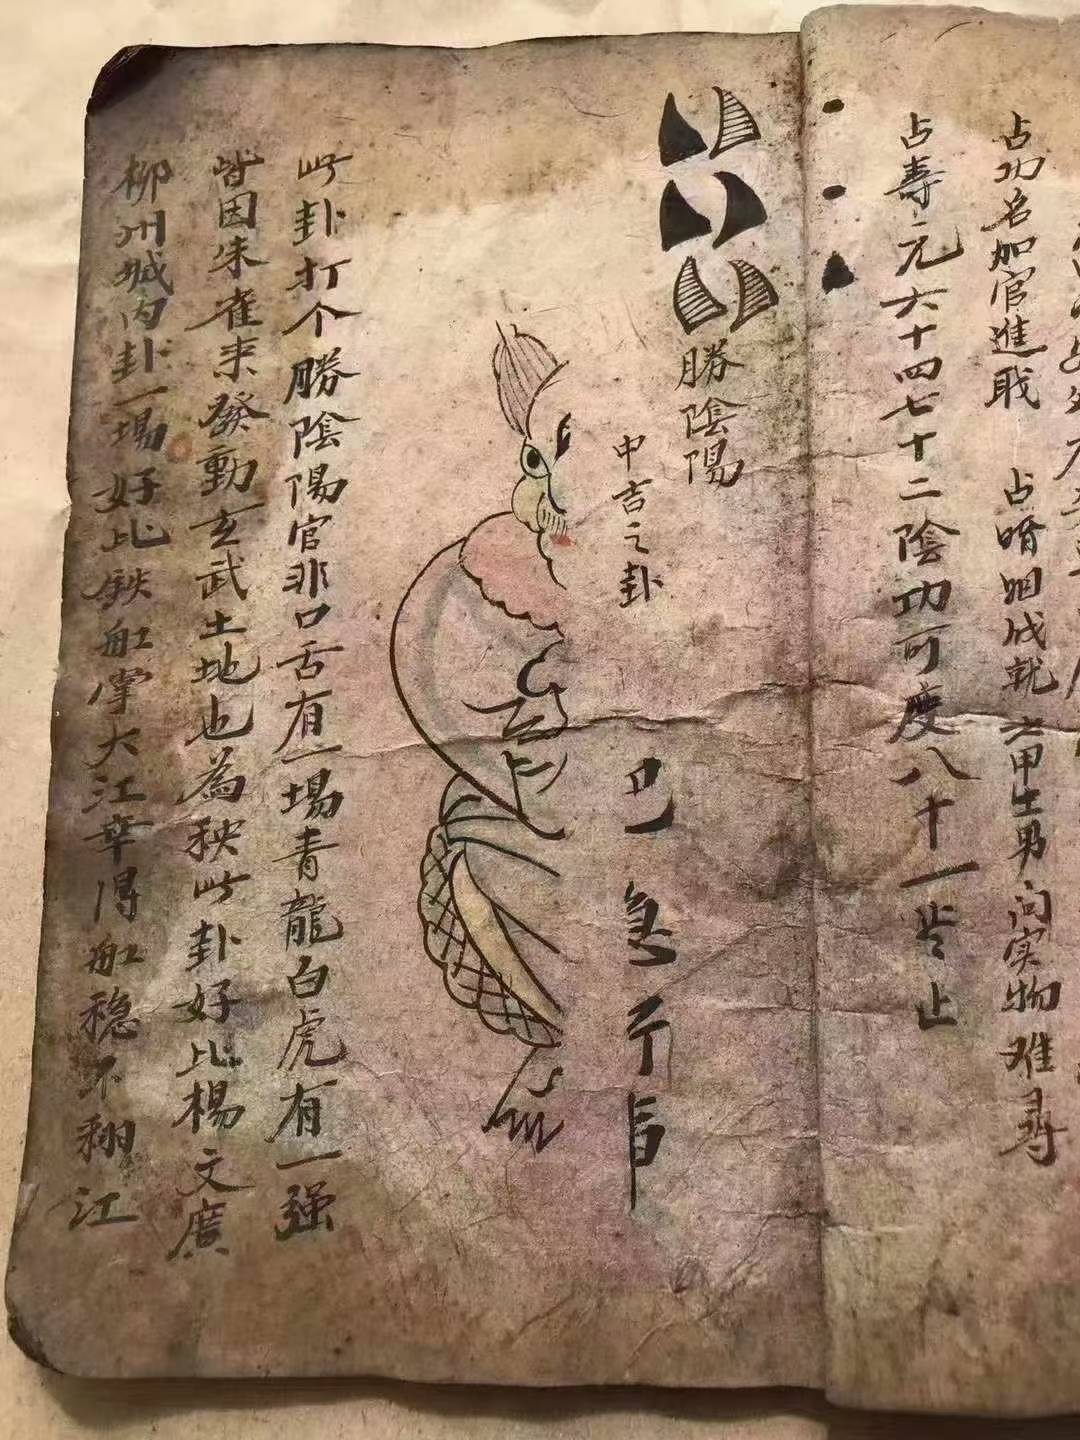 占功名加官進戝 占婚姻成就 六甲生男 问实物难尋
占壽元六十四七十二陰功可度八十一岁止
勝陰陽
中吉之卦
此卦打个勝陰陽官非口舌有一場青龍白虎有一强
皆因朱雀来發動玄武土地也為秧此卦好比楊文廣
柳州城内卦一場好比鉄舡掌大江幸得舡穏不翻江